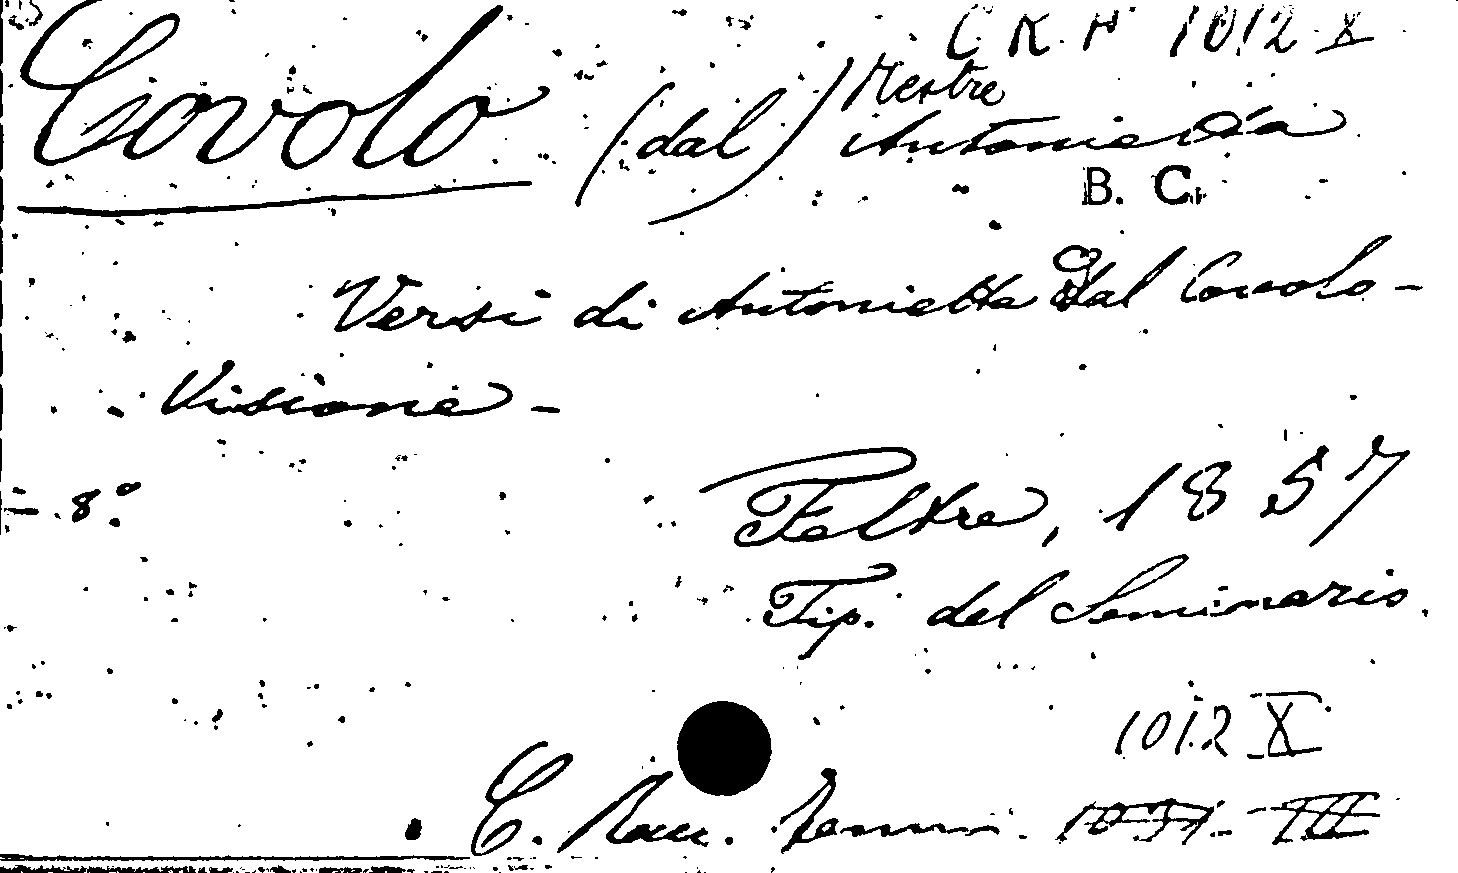 C R A 1012 X
Covolo (dal) Mestre Antonietta
B. C.
Versi di Antonietta Dal Covolo-
Visione -
- 8.º
Feltre, 1857
Tip. del Seminario.
1012 X
C. Racc.